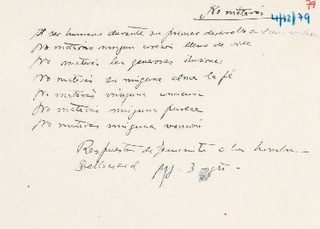 79
No matarás
4/12/79
Al ser humano durante su primer desarrollo
No matarás ningún corazón lleno de vida
No matarás las generosas ilusiones
No matarás en ninguna alma la fé
No matarás ninguna conciencia
No matarás ninguna pureza
No matarás ninguna vocación
Respuestas de a los hombres.
pgs. 3